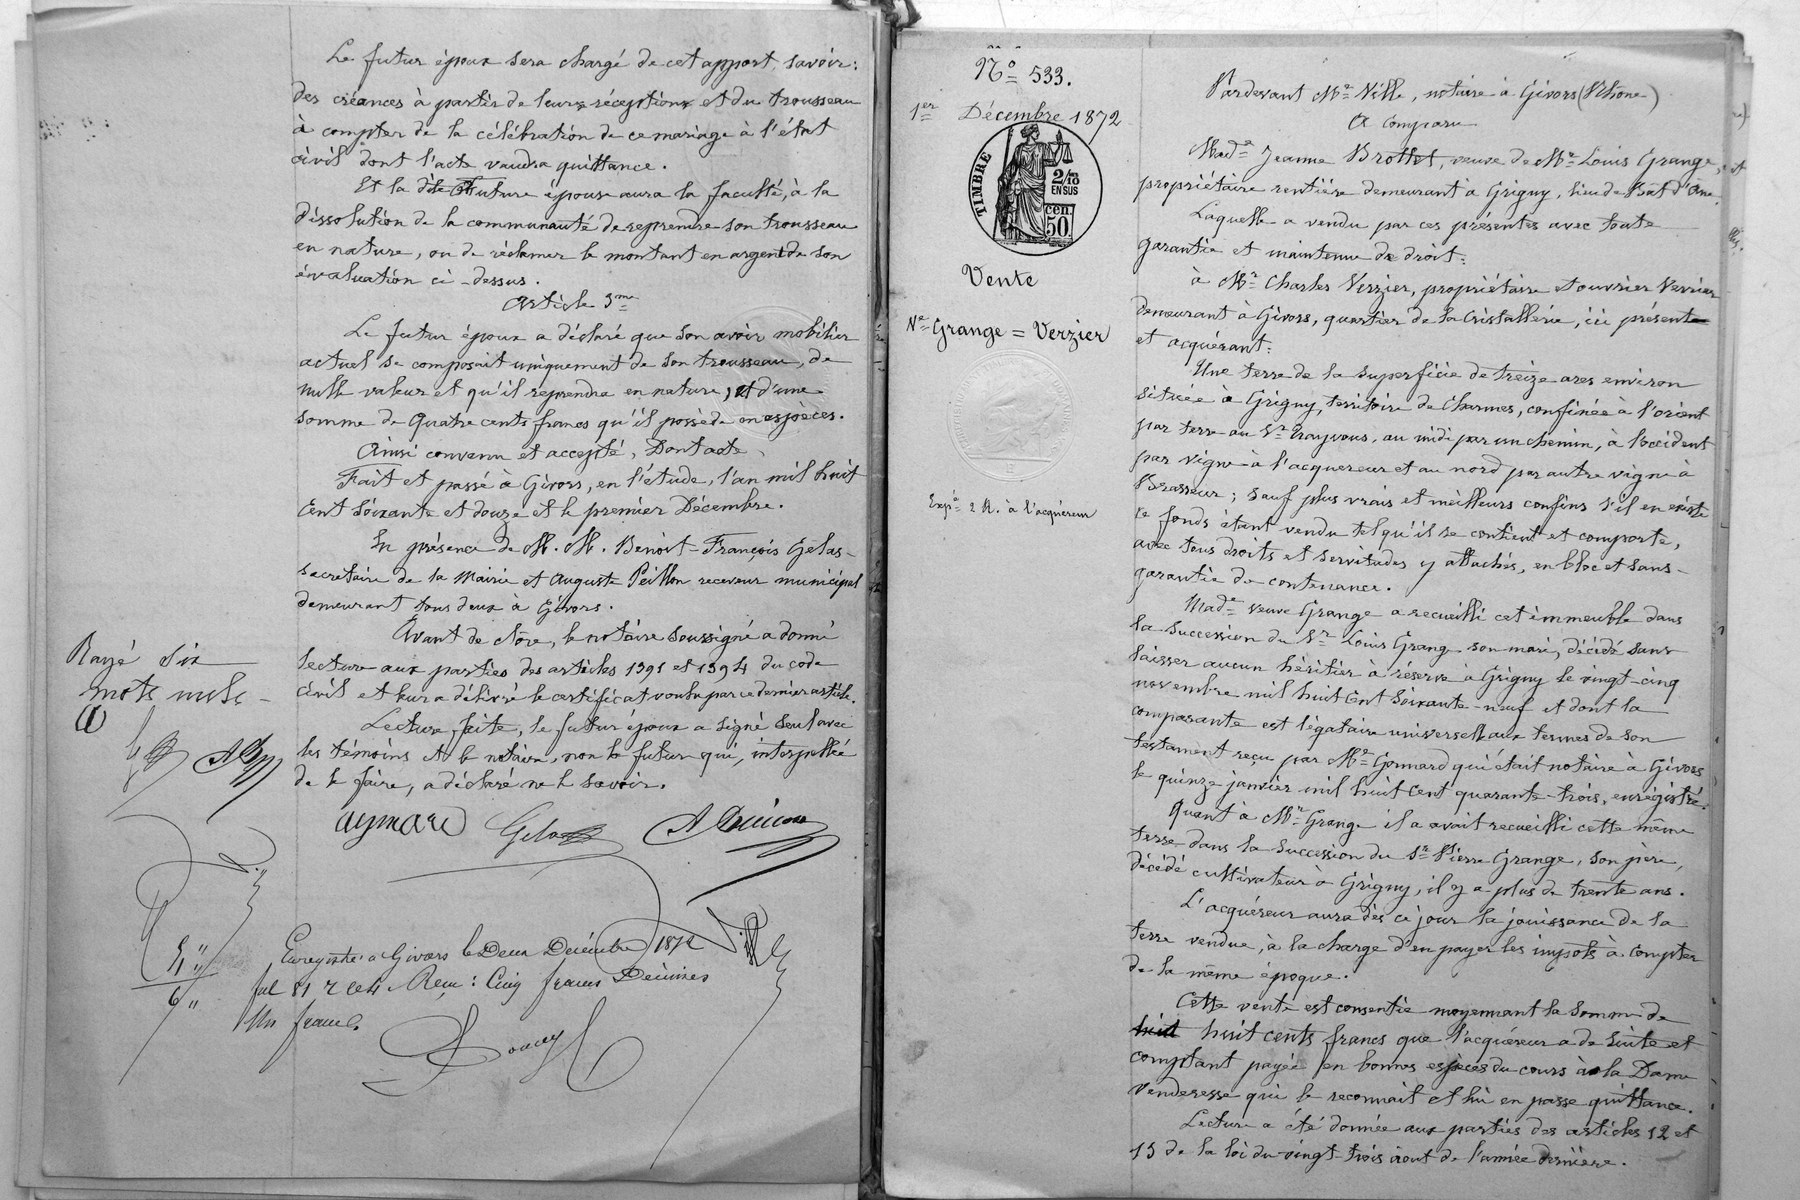 Le futur époux sera chargé de cet apport, savoir :
des créances à partir de leurs réceptions et du trousseau
à compter de la célébration de ce mariage à l'état
civil dont l'acte vaudra quittance.
Et la dite future épouse aura la faculté, à la
dissolution de la communauté de reprendre son trousseau
en nature, ou de réclamer le montant en argent de son
évaluation ci-dessus.
Article 5me
Le futur époux a déclaré que son avoir mobilier
actuel se composait uniquement de son trousseau, de
nulle valeur et qu'il reprendra en nature, et d'une
somme de quatre cents francs qu'il possède en espèces.
Ainsi convenu et accepté, Dont acte,
Fait et passé à Givors, en l'étude, l'an mil huit
cent soixante et douze et le premier Décembre.
En présence de M. M. Benoît-François Gelas-
secrétaire de la Mairie et Auguste Peillon receveur municipal
demeurant tous deux à Givors.
Avant de clore, le notaire soussigné a donné
lecture aux parties des articles 1391 et 1394 du code
civil et leur a délivré le certificat voulu par ce dernier article.
Lecture faite, le futur époux a signé seul avec
les témoins et le notaire, non la futur qui, interpellée
de le faire, a déclaré ne le savoir.
Rayé six
mots nuls
aymard Gelas
Enregistré à Givors le Deux Décembre 1872
fol 81 r Reçu : Cinq francs Décimes
Un franc.
5 "
6 "
No 533.
1er Décembre 1872
TIMBRE
2/10
EN SUS
50 cen.
Vente
Ve Grange = Verzier
Expon 2 R. à l'acquéreur
Pardevant Me Ville, notaire à Givors (Rhône)
A Comparu
Made Jeanne Brottet, veuve de Mr Louis Grange,
propriétaire rentière demeurant à Grigny, lieu de Bat d'Ane.
Laquelle a vendu par ces présentes avec toute
garantie et maintenue de droit :
à Mr Charles Verzier, propriétaire et ouvrier Verrier
demeurant à Givors, quartier de la Cristallerie, ici présent
et acquérant :
Une terre de la superficie de treize ares environ
située à Grigny, territoire de Charmes, confinée à l'orient
par terre au Sr, au midi par un chemin, à l'occident
par vigne à l'acquéreur et au nord par autre vigne à
Brasseur ; sauf plus vrais et meilleurs confins s'il en existe
ce fonds étant vendu tel qu'il se contient et comporte,
avec tous droits et servitudes y attachés, en bloc et sans-
garantie de contenance.
Made veuve Grange a recueilli cet immeuble dans
la succession du Sr Louis Grange son mari, décédé sans
laisser aucun héritier à réserve à Grigny le vingt-cinq
novembre mil huit cent soixante-neuf et dont la
comparante est légataire universelle aux termes de son
testament reçu par Me Gonnard qui était notaire à Givors
le quinze janvier mil huit cent quarante-trois, enrégistré.
Quant à Mr Grange il a avait recueilli cette même
terre dans la succession du Sr Pierre Grange, son père,
décédé cultivateur à Grigny, il y a plus de trente ans.
L'acquéreur aura dès ce jour la jouissance de la
terre vendue, à la charge d'en payer les impots à compter
de la même époque.
Cette vente est consentie moyennant la somme de
huit huit cents francs que l'acquéreur a de suite et
comptant payée en bonnes espèces du cours à la Dame
venderesse qui le reconnait et lui en passe quittance.
Lecture a été donnée aux parties des articles 12 et
13 de la loi du vingt-trois aout de l'année dernière.